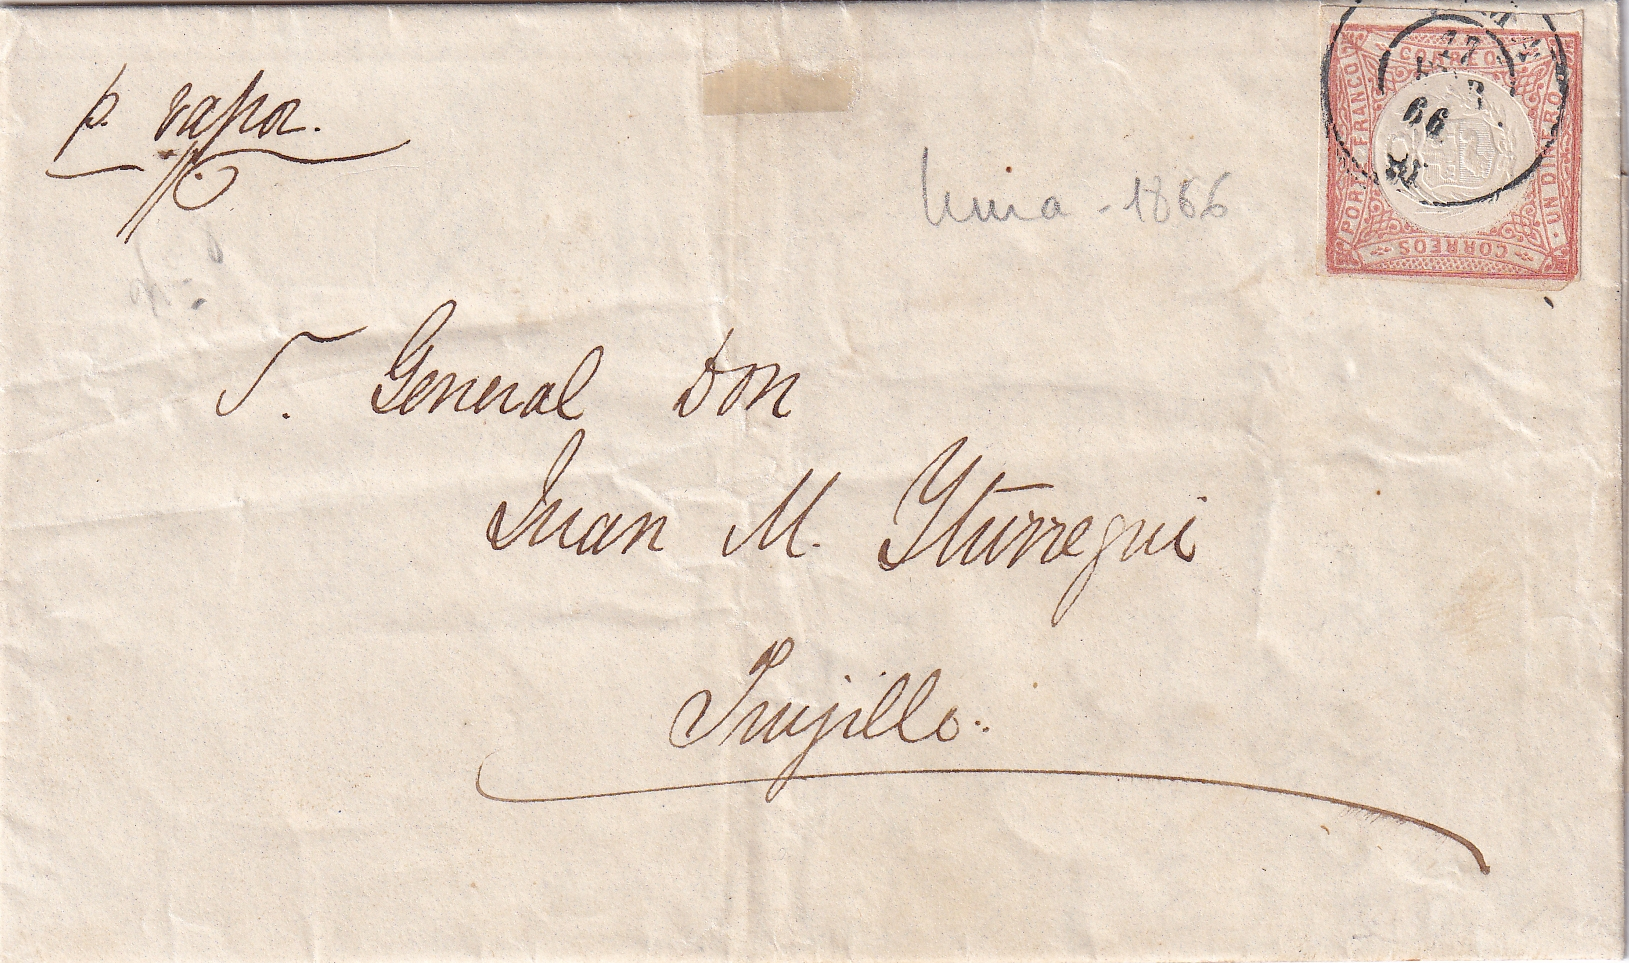 p. vapor.
Lima - 1866
CORREOS
PORTE FRANCO
UN DINERO
CORREOS
66
S. General Don
Juan M. Yturregui
Trujillo.